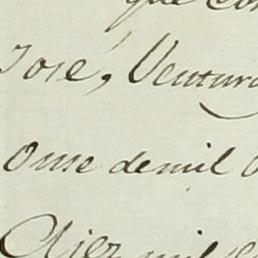 que con
José, Ventura
Onse demil O
Diez mil se